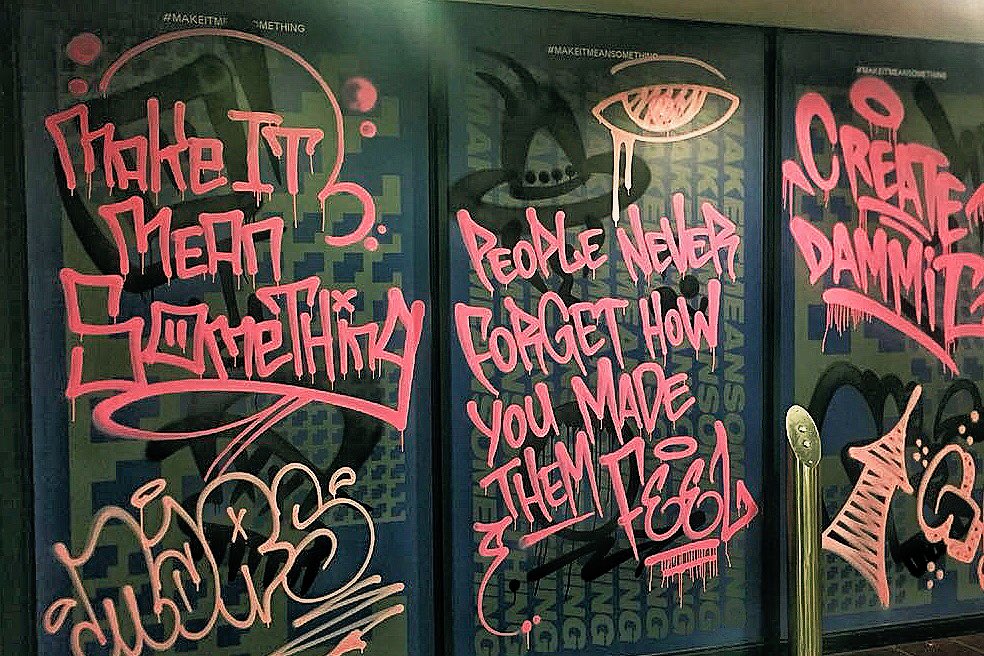 #MAKEITME SOMETHING
MAKE IT
MEAN
SOMETHING
#MAKEITMEANSOMETHING
PEOPLE NEVER
FORGET HOW
YOU MADE
THEM FEEL
#MAKEITMEANSOMETHING
CREATE
DAMMIT